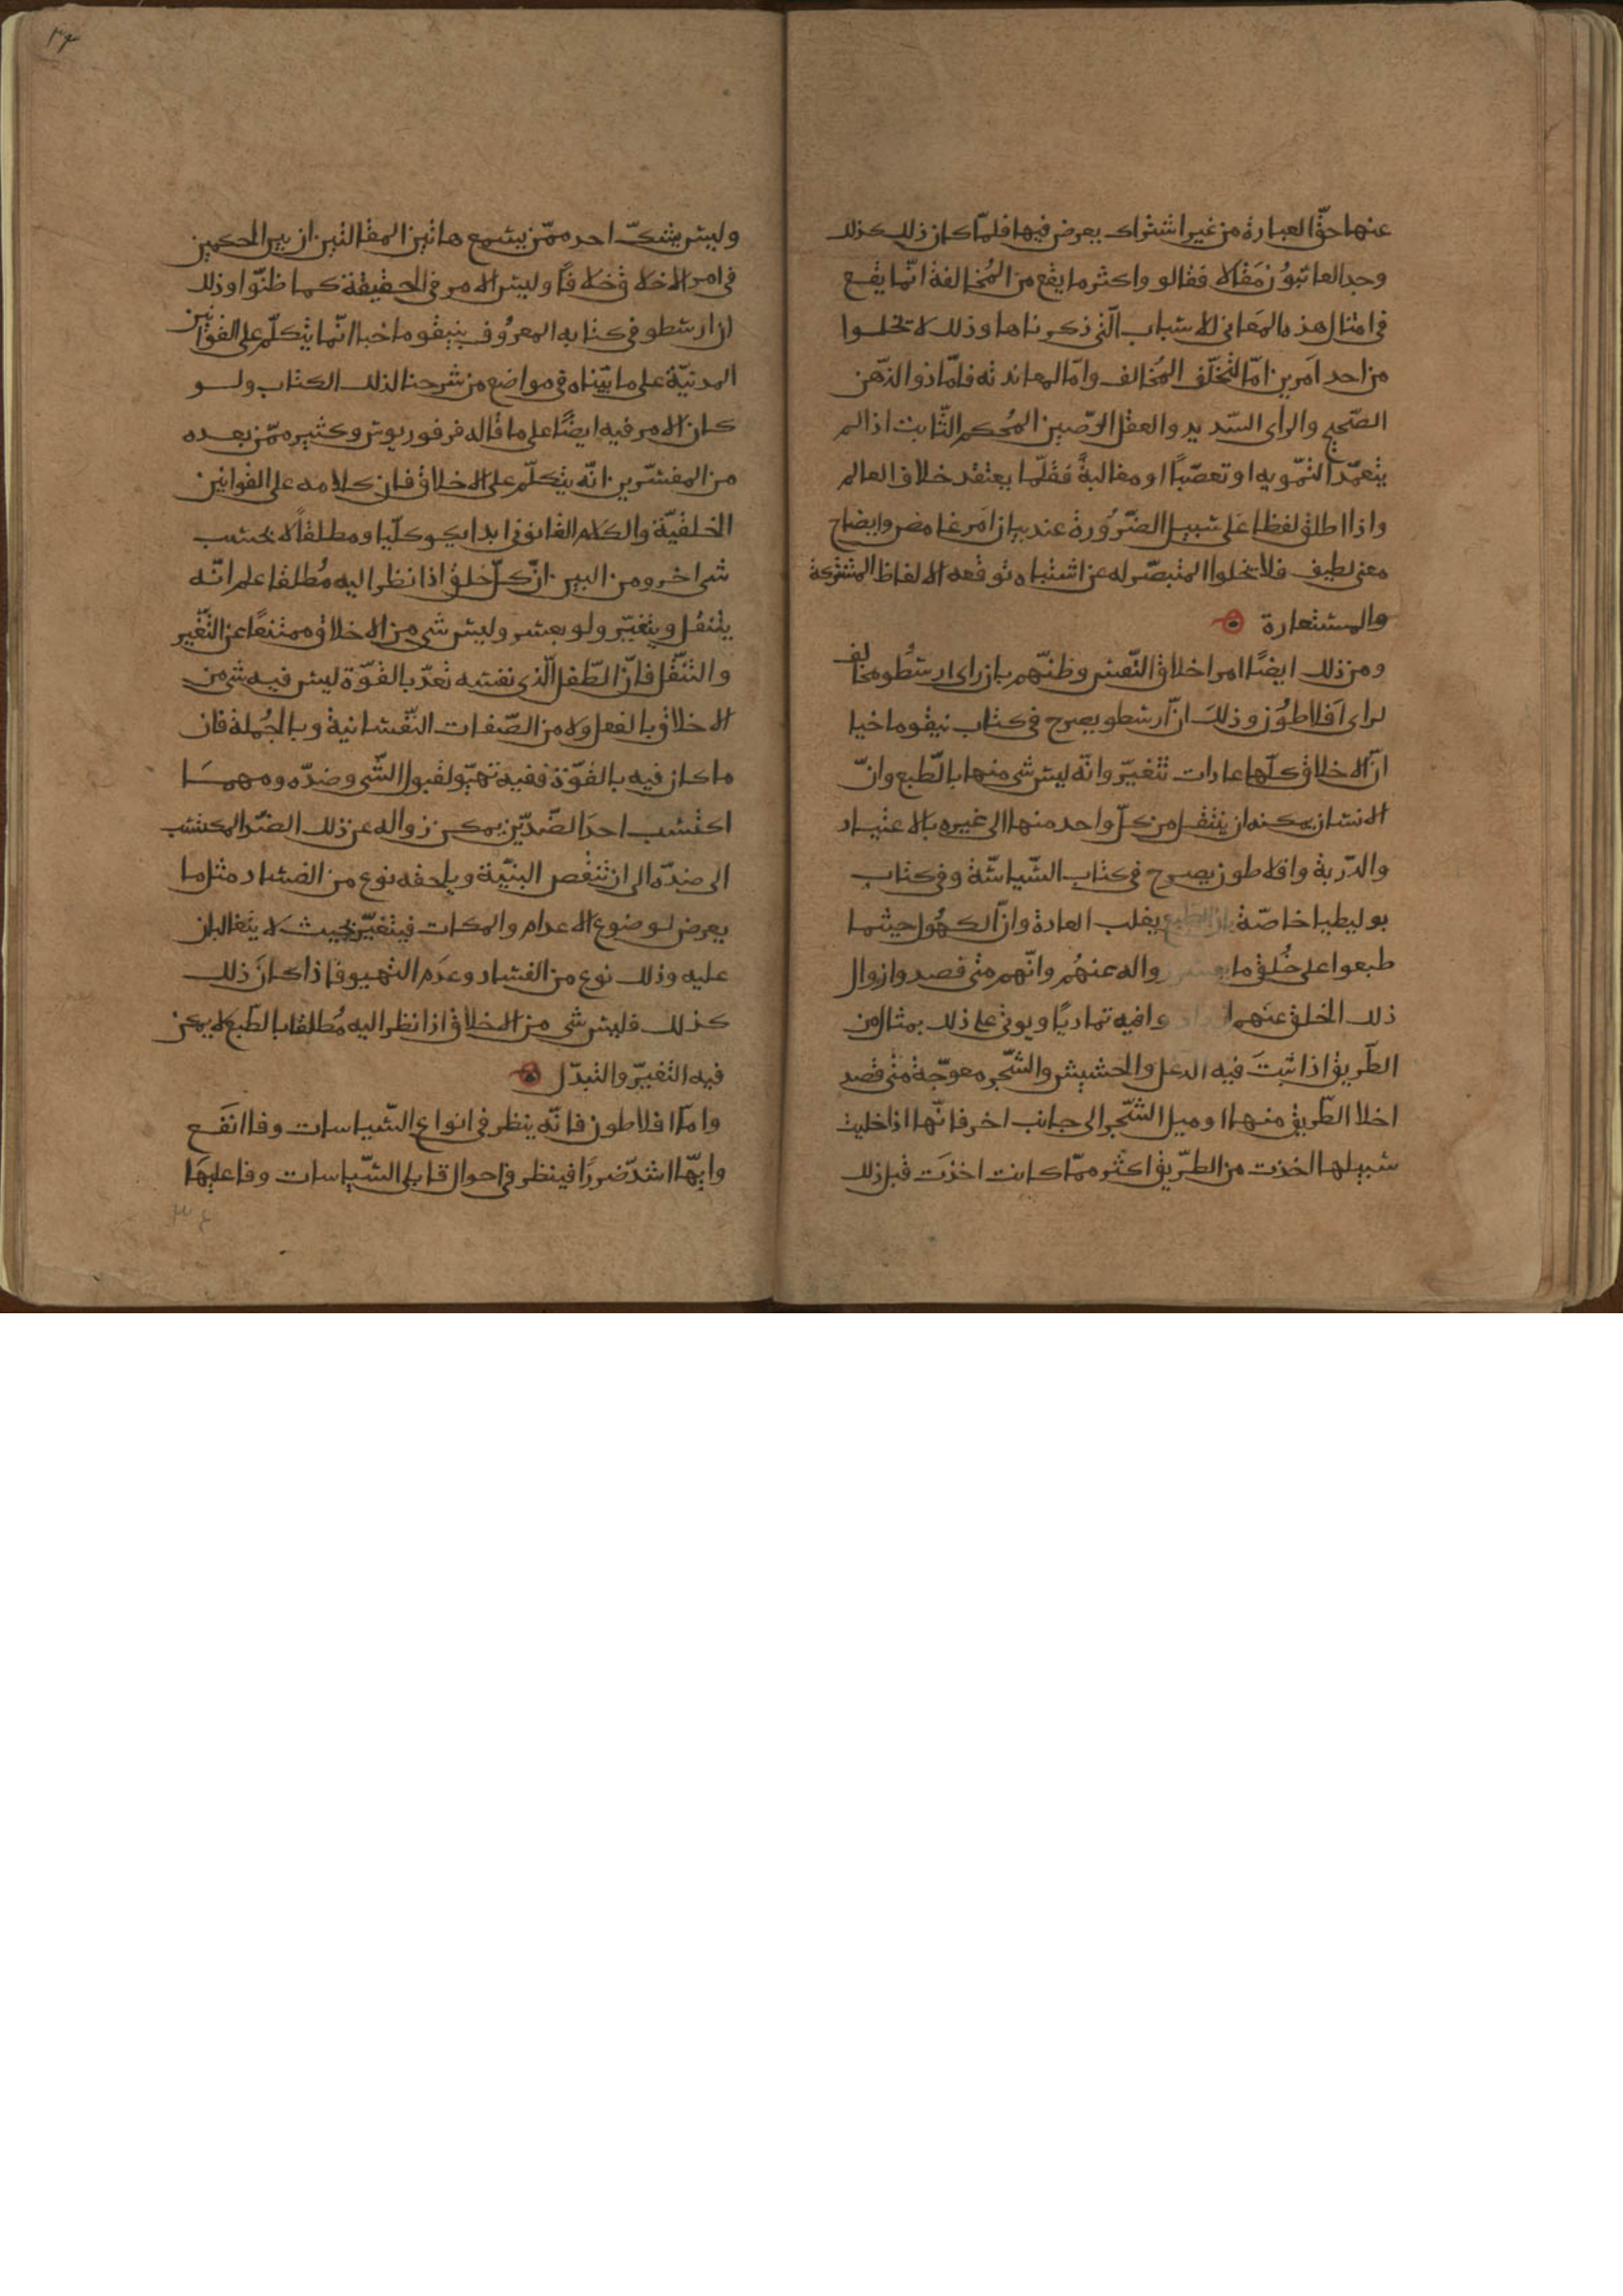 عنها حقّ العبارة من غير اشتراك يعرض فيها فلمّا كان ذلك كذلك
وجد العائبون مَقالا فقالو واكثر ما يقع من المُخالفة انّما يقع
فى امثال هذه المَعانى للاسباب الّتى ذكرناها وذلك لا يخلوا
من احد اَمرين امّا لتخلّف المُخالف وامّا لمعاندته فامّا ذو الذّهن
الصّحيح والراى السّديد والعقل الرّصين المُحكم الثّابت اذا لم
يتعمّد التمّويه او تعصّباً او مغالبةً فقلّما يعتقد خلاف العالم
واذا اطلق لفظا عَلى سبيل الضّرُورة عند بيان اَمر غامض وايضاح
معنى لطيف فلا يخلوا المتبصّر له عن اشتباه توقعه الالفاظ المشتركة
والمستعارة
ومن ذلك ايضًا امر اخلاق النّفس وظنّهم بان راى ارسطُو مخالف
لراى اَفلاطوُن وذلكَ انّ ارسطو يصرح فى كتاب نيقوماخيا
انّ الاخلاق كلّها عادات تتغيّر وانّه ليس شى منها بالطّبع وانّ
الانسان يمكنه ان ينتقل من كلّ واحد منها الى غيره بالاعتياد
والدّربة وافلاطون يصرح فى كتاب السّياسّة وفى كتاب
بوليطيا خاصّة بان الطبع يغلب العادة وانّ الكهُول حيثما
طبعوا على خُلق ما يعسر زواله عنهُم وانّهم متى قصدوا زوال
ذلك الخلق عنهم ازدادوا فيه تماديًا ويوتى على ذلك بمثال من
الطّريق اذا نبتَ فيه الدغل والحشيش والشّجر معوجّة متى قصد
اخلا الطّريق منها او ميل الشّجر الى جانب اخر فانّها اذا خليت
سبيلها اخذت من الطرّيق اكثر ممّا كانت اخذَت قبل ذلك
وليس يشكّ احد ممّن يسمع هاتين المقالتين ان بين الحكمين
فى امر الاخلاق خلافاً وليس الامر فى الحقيقة كما ظنّوا وذلك
ان ارسطو فى كتابه المعروُف بنيقوماخيا انّما يتكلّم على القوانين
المدنيّة على ما بيّناه فى مواضع من شرحنا لذلك الكتاب ولو
كان الامر فيه ايضًا على ما قاله فرفوريوس وكثير ممّن بعده
من المفسّرين انّه يتكلّم على الاخلاق فان كلامه على القوانين
الخلقيّة والكلام القانونى ابدا يكو كليّا ومطلقًا لا بحسب
شى اخر ومن البين انّ كلّ خلق اذا نظر اليه مُطلقا علم انّه
يتنقل ويتغيّر ولو بعسر وليس شى من الاخلاق ممتنعًا عن التّغّير
والتنّقّل فانّ الطّفل الّذى نفسه تعدّ بالقوّة ليس فيه شى من
الاخلاق بالفعل ولا من الصّفات النّفسانية وبالجُملة فان
ما كان فيه بالقوّة ففيه تهيّو لقبول الشّى وضدّه ومهمَا
اكتسب احدَ الضّدّين يمكن زواله عن ذلك الضدّ المكتسب
الى ضدّه الى ان تنقص البنيّة ويلحقه نوع من الفساد مثل ما
يعرض لموضوع الاعدام والمكات فيتغيّر بحيث لا يتَغالبان
عليه وذلك نوع من الفساد وعدَم التهيو فاذا كانَ ذلك
كذلك فليس شى من الاخلاق اذا نظر اليه مُطلقا بالطّبع لا يمكن
فيه التغيّر والتبدّل
وامّا افلاطون فانّه ينظر فى انواع السّياسات وفا انفَع
وايّها اشدّ ضررًا فينظر فى احوال قابلى السّياسات وفاعليهَا